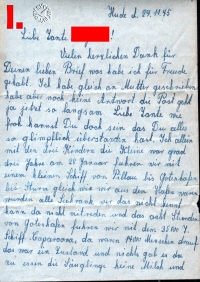 1.
Hude d. 24.11.45
Liebe Tante !
Vielen herzlichen Dank für
Deinen lieben Brief was habe ich für Freude
gehabt. Ich habe gleich an Mutter geschrieben
habe aber noch keine Antwort die Post geht
ja jetzt so langsam. Liebe Tante wie
froh kannst Du doch sein das Du alles
so glimpflich überstanden hast. Ich allein
mit den drei Kindern die Kleine war grad
drei Jahre am 21 Januar fuhren wir mit
einem kleinen Schiff von Pillau bis Gotenhafen
bei Sturm gleich wie wir aus dem Hafen waren
wurden alle Seekrank wer das nicht kennt
kann da nicht mitreden und das acht Stunden
von Gotenhafen fuhren wir mit dem 35000 T.
Schiff da waren Menschen drauf
das war ein Zustand und nichts gab es da
zu essen die Säuglinge keine Milch und